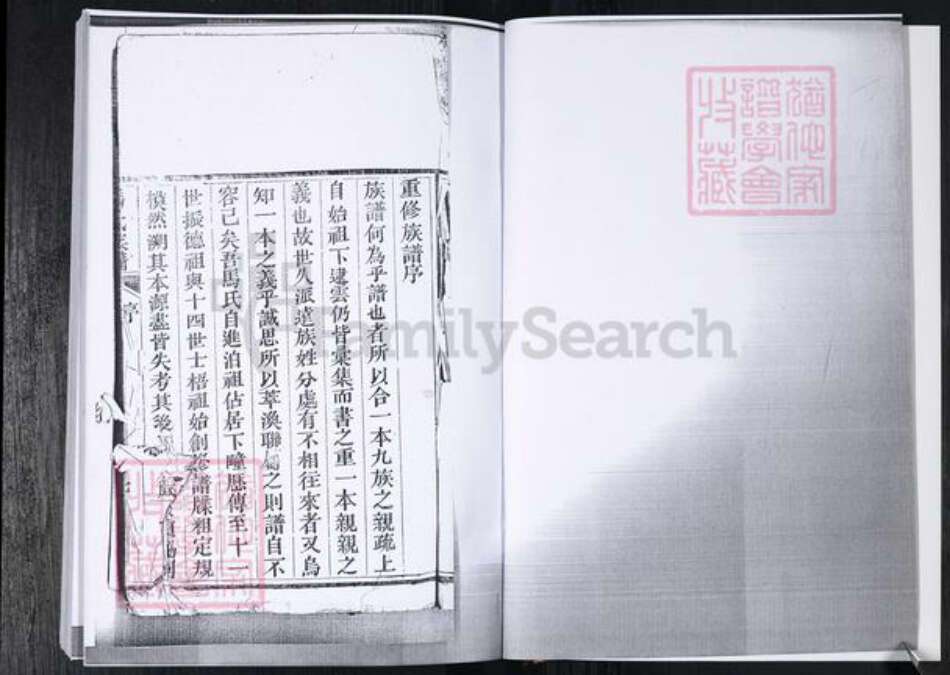 重修族譜序
族譜何為乎譜也者所以合一本九族之親疏上
自始祖下逮雲仍皆彙集而書之重一本親親之
義也故世久派遠族姓分處有不相往來者又烏
知一本之義乎誠思所以萃渙聯屬之則譜自不
容已矣吾馬氏自進泊祖佔居下疃歷傳至十一
世振德祖與十四世士梧祖始創譜牒粗定規
模然溯其本源盡皆失考其後
氏族譜
序
家譜學會
收藏
FamilySearch